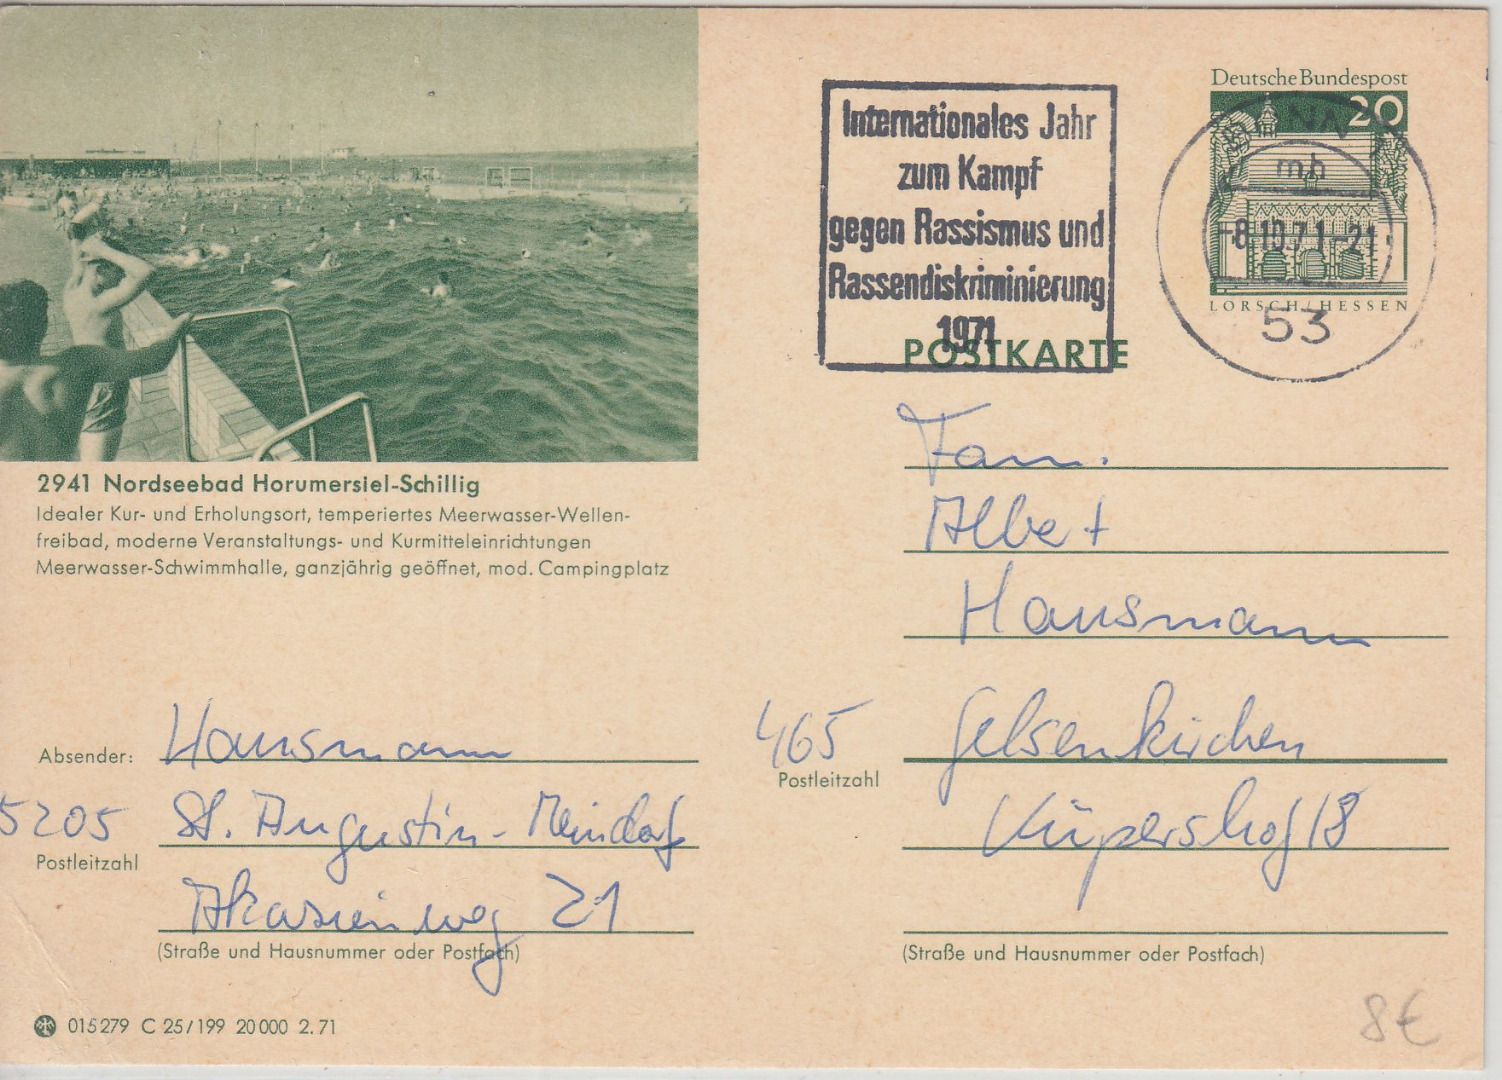 Deutsche Bundespost
20
Internationales Jahr
zum Kampf
gegen Rassismus und
Rassendiskriminierung
1971
mh
-8.10.71-21
53
LORSCH/HESSEN
POSTKARTE
2941 Nordseebad Horumersiel-Schillig
Idealer Kur- und Erholungsort, temperiertes Meerwasser-Wellen-
freibad, moderne Veranstaltungs- und Kurmitteleinrichtungen
Meerwasser-Schwimmhalle, ganzjährig geöffnet, mod. Campingplatz
Fam.
Albert
Hausmann
465 Gelsenkirchen
Postleitzahl
Küpershof 18
(Straße und Hausnummer oder Postfach)
Absender: Hausmann
5205 St. Augustin-Meindorf
Postleitzahl
Akazienweg 21
(Straße und Hausnummer oder Postfach)
015279 C 25/199 20000 2.71
8€